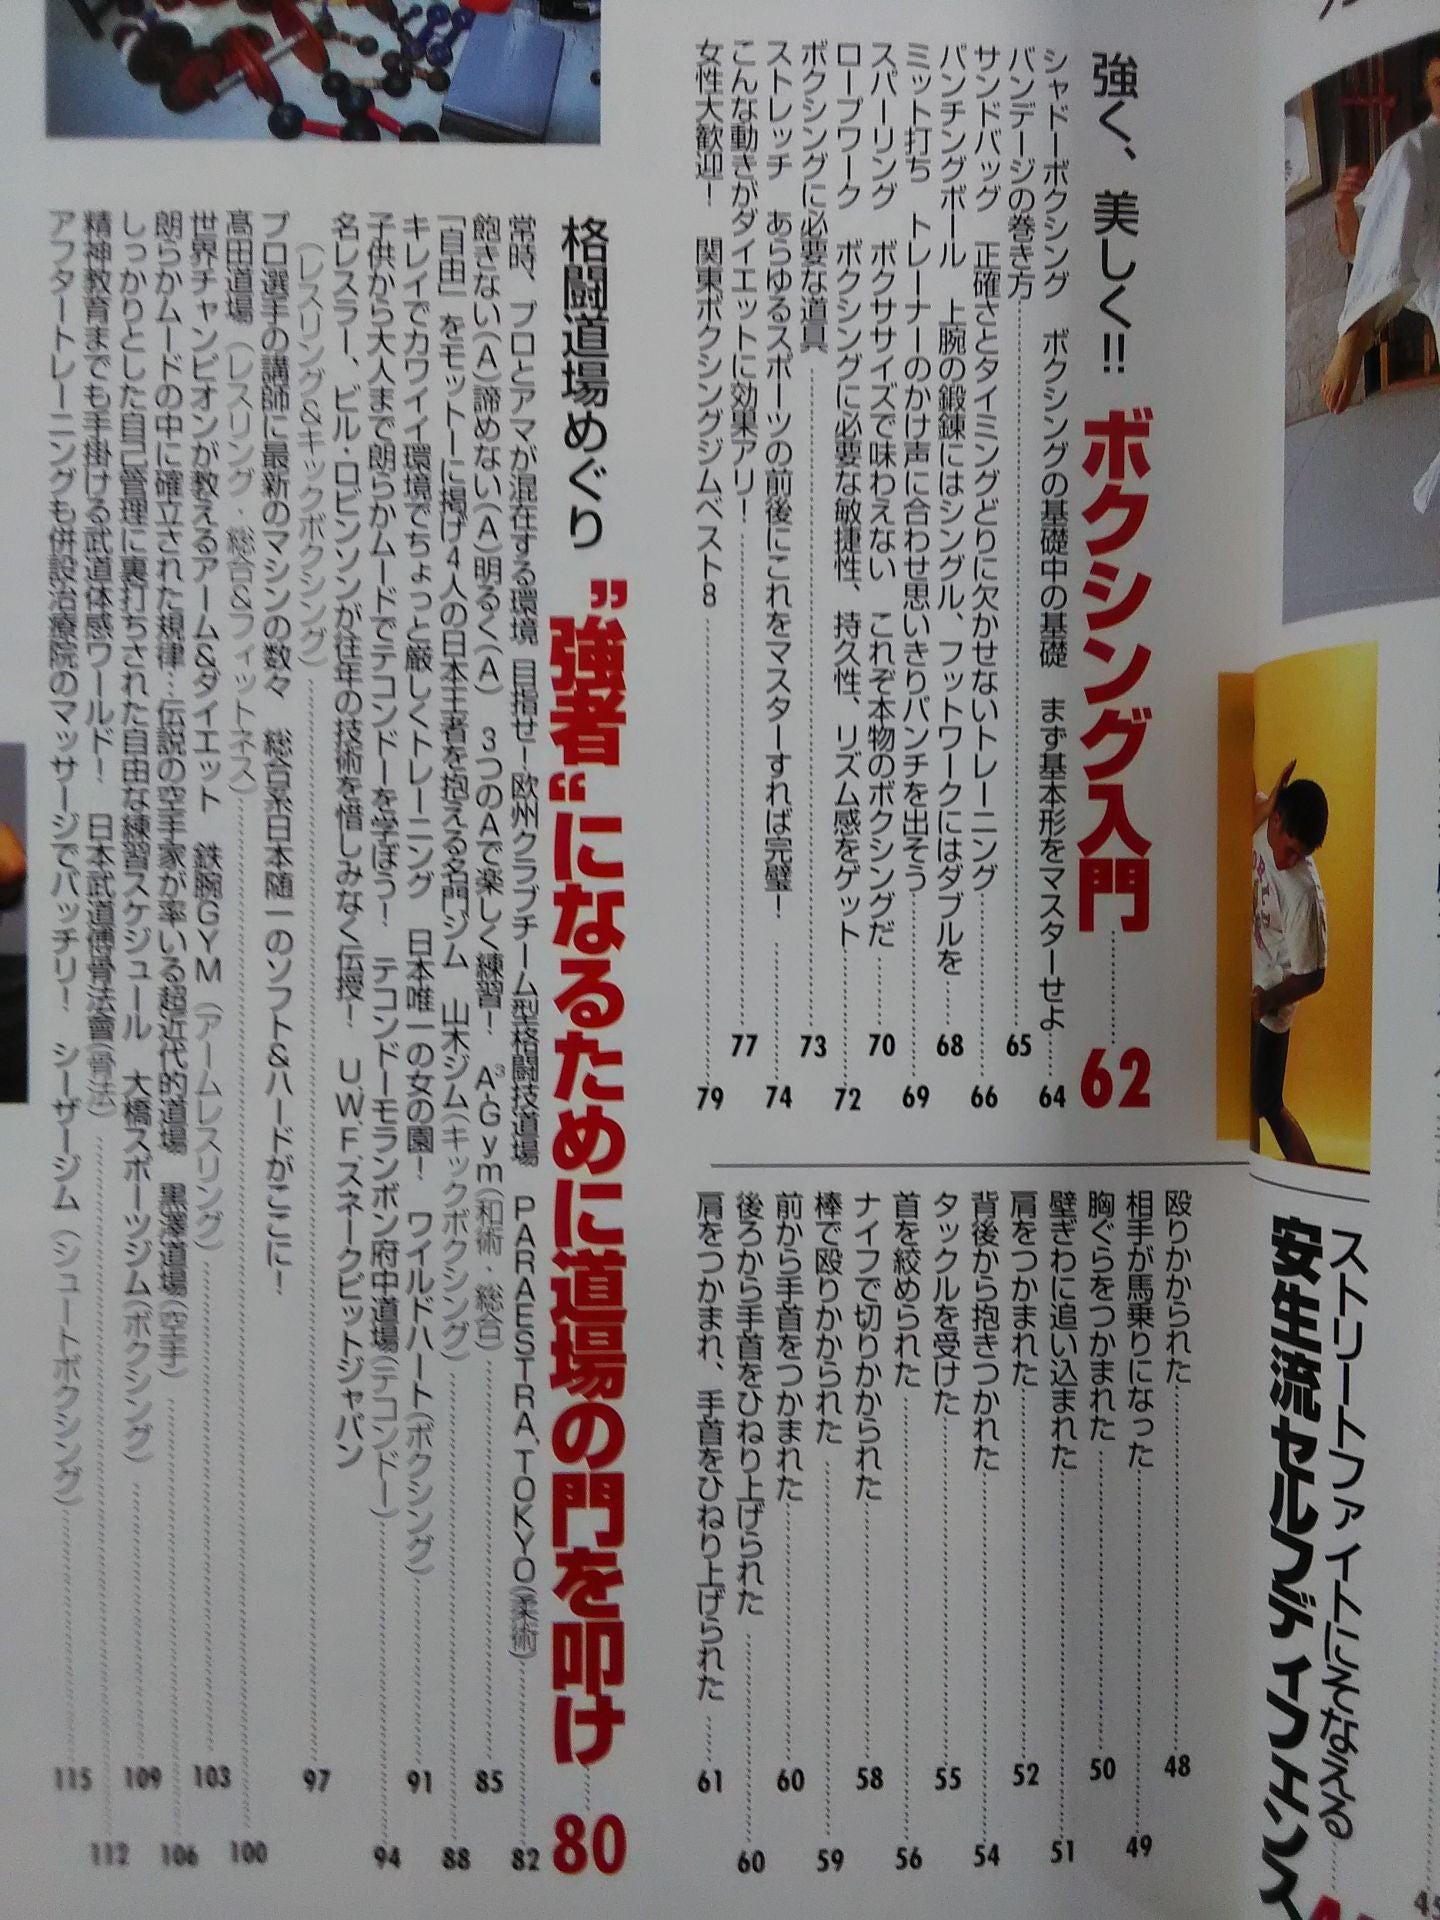 ストリートファイトにそなえる
安生流セルフディフェンス
殴りかかられた 48
相手が馬乗りになった 49
胸ぐらをつかまれた 50
壁ぎわに追い込まれた 51
肩をつかまれた 52
背後から抱きつかれた 54
タックルを受けた 55
首を絞められた 56
ナイフで切りかかられた 58
棒で殴りかかられた 59
前から手首をつかまれた 60
後ろから手首をひねり上げられた 60
肩をつかまれ、手首をひねり上げられた 61
強く、美しく!! ボクシング入門 62
シャドーボクシング ボクシングの基礎中の基礎 まず基本形をマスターせよ 64
バンデージの巻き方 65
サンドバッグ 正確さとタイミングどりに欠かせないトレーニング 66
パンチングボール 上腕の鍛錬にはシングル、フットワークにはダブルを 68
ミット打ち トレーナーのかけ声に合わせ思いきりパンチを出そう 69
スパーリング ボクササイズで味わえない これぞ本物のボクシングだ 70
ロープワーク ボクシングに必要な敏捷性、持久性、リズム感をゲット 72
ボクシングに必要な道具 73
ストレッチ あらゆるスポーツの前後にこれをマスターすれば完璧! 74
こんな動きがダイエットに効果アリ! 77
女性大歓迎! 関東ボクシングジムベスト8 79
格闘道場めぐり
"強者"になるために道場の門を叩け 80
常時、プロとアマが混在する環境 目指せ!欧州クラブチーム型格闘技道場 PARAESTRA,TOKYO(柔術) 82
飽きない(A)諦めない(A)明るく(A) 3つのAで楽しく練習! A³-Gym(和術・総合) 85
「自由」をモットーに掲げ4人の日本王者を抱える名門ジム 山木ジム(キックボクシング) 88
キレイでカワイイ環境でちょっと厳しくトレーニング 日本唯一の女の園! ワイルドハート(ボクシング) 91
子供から大人まで朗らかムードでテコンドーを学ぼう! テコンドーモランボン府中道場(テコンドー) 94
名レスラー、ビル・ロビンソンが往年の技術を惜しみなく伝授! U.W.F.スネークピットジャパン
(レスリング&キックボクシング) 97
プロ選手の講師に最新のマシンの数々 総合系日本随一のソフト&ハードがここに!
高田道場 (レスリング・総合&フィットネス) 100
世界チャンピオンが教えるアーム&ダイエット 鉄腕GYM (アームレスリング) 103
朗らかムードの中に確立された規律…伝説の空手家が率いる超近代的道場 黒澤道場(空手) 106
しっかりとした自己管理に裏打ちされた自由な練習スケジュール 大橋スポーツジム(ボクシング) 109
精神教育までも手掛ける武道体感ワールド! 日本武道傳骨法會(骨法) 112
アフタートレーニングも併設治療院のマッサージでバッチリ! シーザージム (シュートボクシング) 115